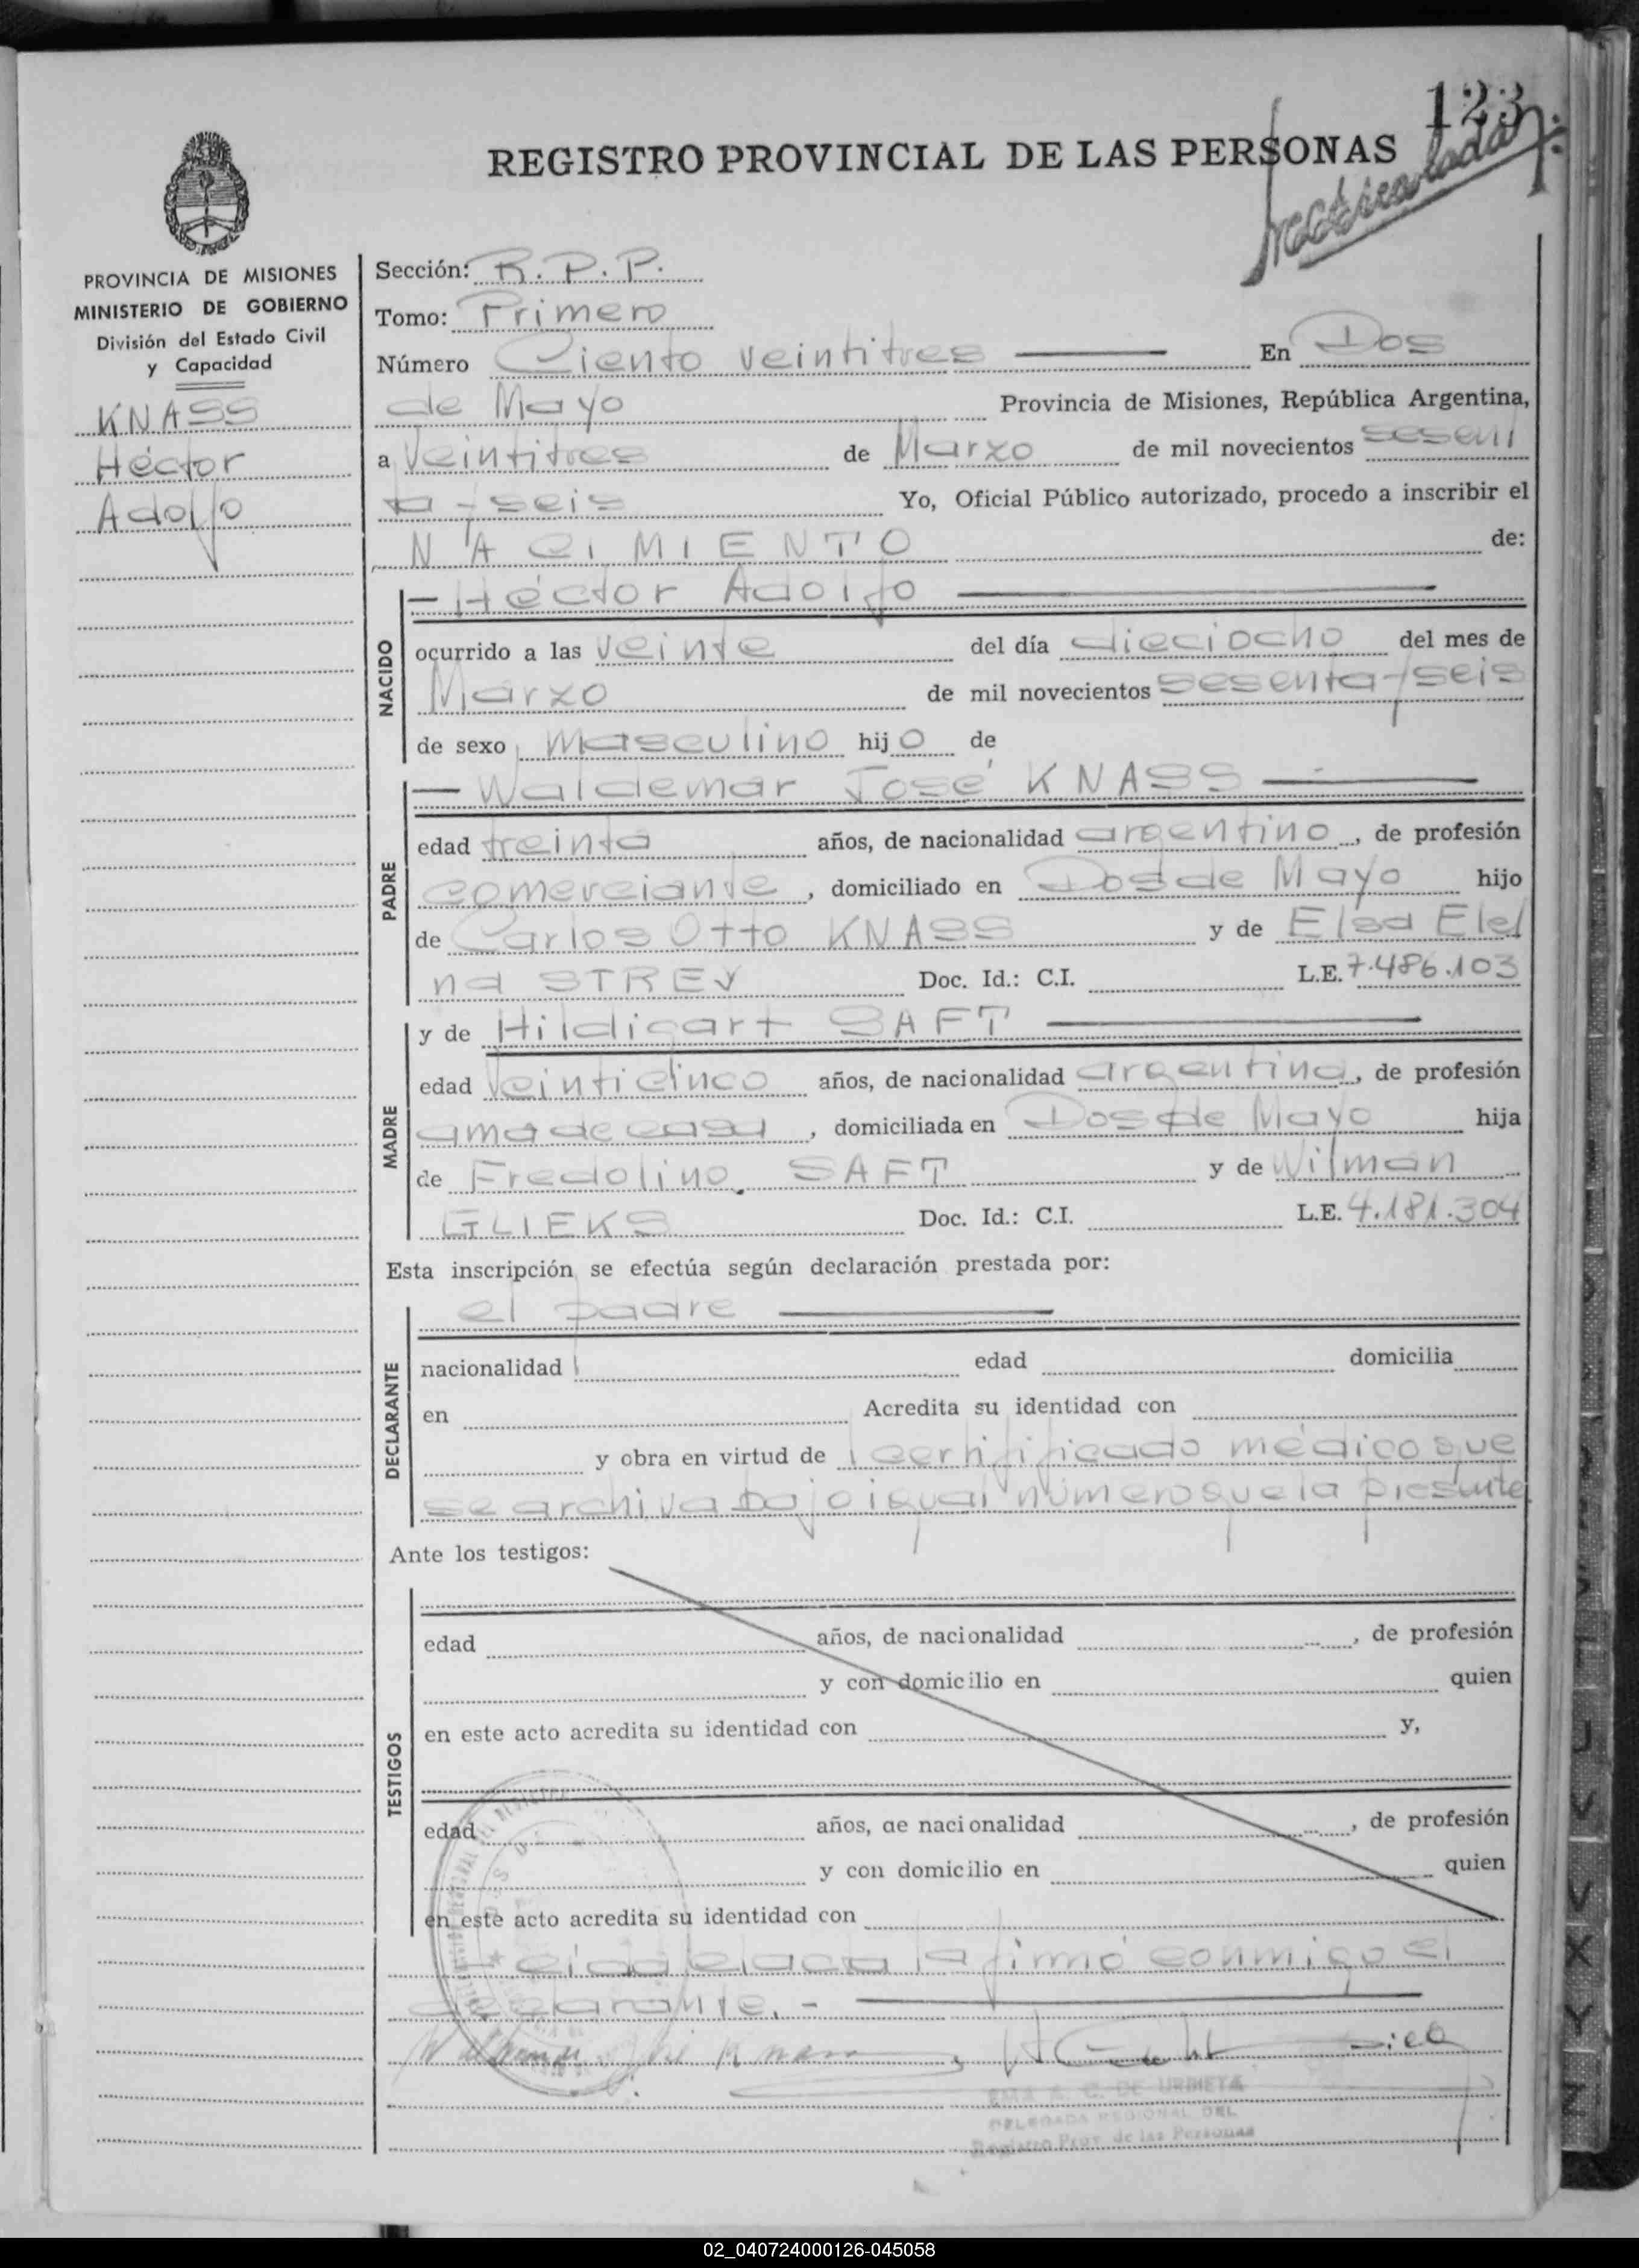 123
REGISTRO PROVINCIAL DE LAS PERSONAS
PROVINCIA DE MISIONES
MINISTERIO DE GOBIERNO
División del Estado Civil
y Capacidad
KNASS
Héctor
Adolfo
Sección: R. P. P.
Tomo: Primero
Número Ciento veintitres En Dos
de Mayo Provincia de Misiones, República Argentina,
a Veintitres de Marzo de mil novecientos sesen
ta y seis Yo, Oficial Público autorizado, procedo a inscribir el
NACIMIENTO de:
NACIDO
Héctor Adolfo
ocurrido a las veinte del día dieciocho del mes de
Marzo de mil novecientos sesenta y seis
de sexo Masculino hijo de
PADRE
Waldemar José KNASS
edad treinta años, de nacionalidad argentino, de profesión
comerciante, domiciliado en Dos de Mayo hijo
de Carlos Otto KNASS y de Elsa Ele
na STREY Doc. Id.: C.I. L.E. 7.486.103
MADRE
y de Hildigart SAFT
edad Veinticinco años, de nacionalidad argentina, de profesión
ama de casa, domiciliada en Dos de Mayo hija
de Fredolino SAFT y de Wilman
GLIEKS Doc. Id.: C.I. L.E. 4.181.304
Esta inscripción se efectúa según declaración prestada por:
DECLARANTE
el padre
nacionalidad edad domicilia
en Acredita su identidad con
y obra en virtud de certificado médico que
se archiva bajo igual número que la presente
Ante los testigos:
TESTIGOS
edad años, de nacionalidad , de profesión
y con domicilio en quien
en este acto acredita su identidad con y,
edad años, de nacionalidad , de profesión
y con domicilio en quien
en este acto acredita su identidad con
Leida el acta la firmó conmigo el
declarante.-
EMA A. C. DE URBIETA
DELEGADA REGIONAL DEL
Registro Prov. de las Personas
02_040724000126-045058